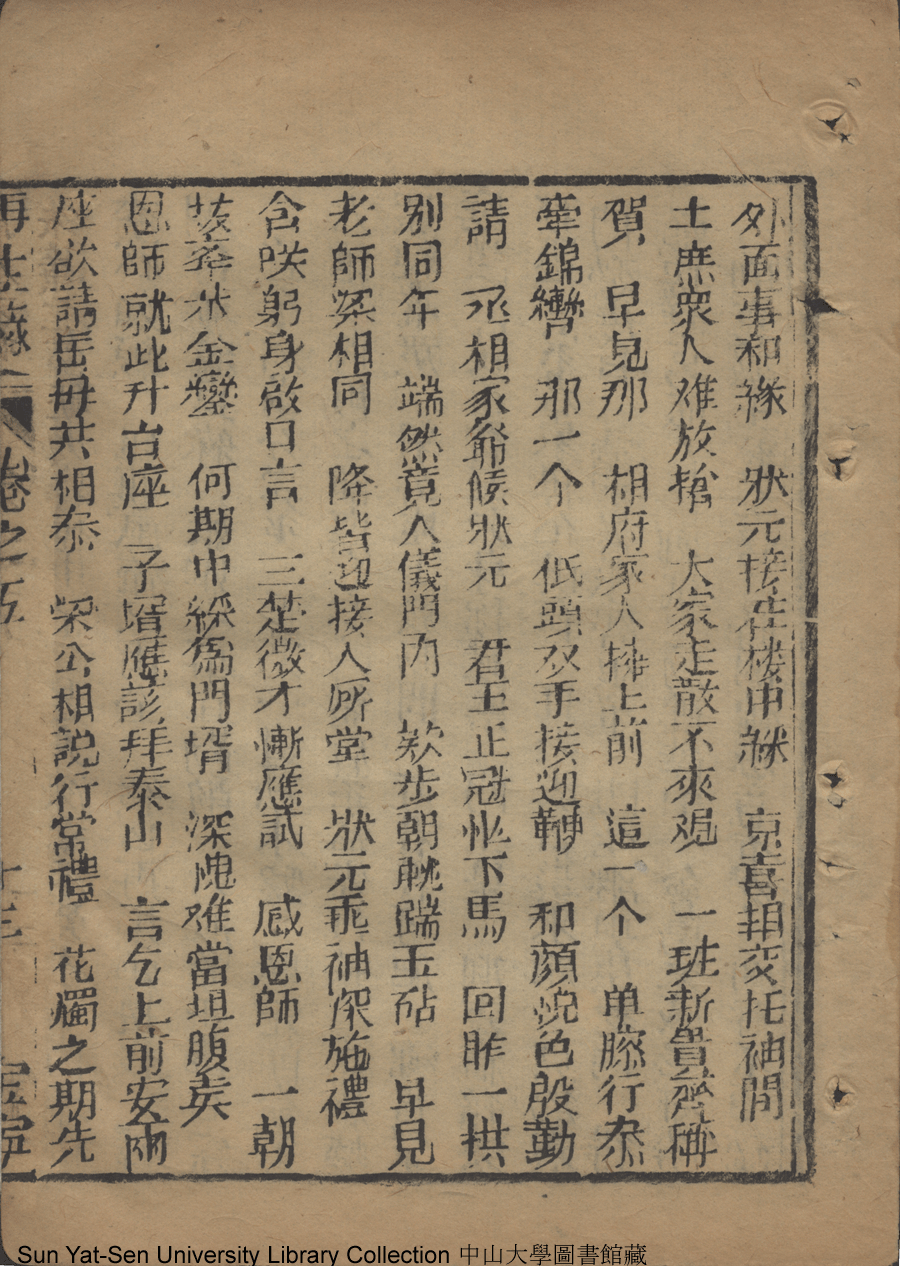 外面事和緣　狀元接在樓中綵　京喜相交托袖間
士庶眾人难放搶　大家走散不來观　一班新貴齊稱
賀　早見那　相府家人擁上前　這一个　单膝行叅
牽錦轡　那一个　低頭双手接迎鞭　和顏悅色殷勤
請　丞相家爺候狀元　君玉正冠忙下馬　回眸一拱
別同年　端然竟入儀門內　欵步朝靴踹玉砧　早見
老師梁相同　降皆迎接入㕔堂　狀元乖袖深施禮
含咲躬身啟口言　三楚微才慚應試　感恩師　一朝
拔萃步金鑾　何期中綵衙門壻　深愧难當坦腹矣
恩師就此升台座　子壻應該拜泰山　言乞上前安兩
座欲請岳母共相叅　梁公相說行常禮　花燭之期先
再生緣　卷之五